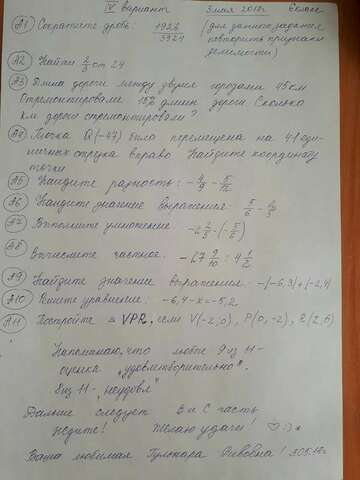 IV вариант 3 мая 2018г. 6 класс
A1 Сократите дробь: 1922/3924 (для данного задания повторить признаки делимости)
A2 Найти от 24
A3 Длина дороги между двумя городами 45 км
Отремонтировали 15% длины дороги. Сколько
км дороги отремонтировали?
A4 Точка Q(-47) была перемещена на 41 еди-
ничных отрезка вправо Найдите координату
точки
A5 Найдите разность: -4/9 - 5/12
A6 Найдите значение выражения 5/6 -
A7 Выполните умножение -2 2/3 · (-5/6)
A8 Вычислите частное. -27 9/10 : 4 1/2
A9 Найдите значение выражения: -(-6,3)+(-2,4)
A10 Решите уравнение: -6,4-x=-5,2
A11 Постройте △ VPR, если V(-2;0), P(0;-2), R(2;6)
Напоминаю, что любые 9 из 11-
оценка „удовлетворительно".
8 из 11-„неудовл"
Дальше следует B и C часть
Ждите! Желаю удачи!
Ваша любимая Гульнора! 3.05.18г.